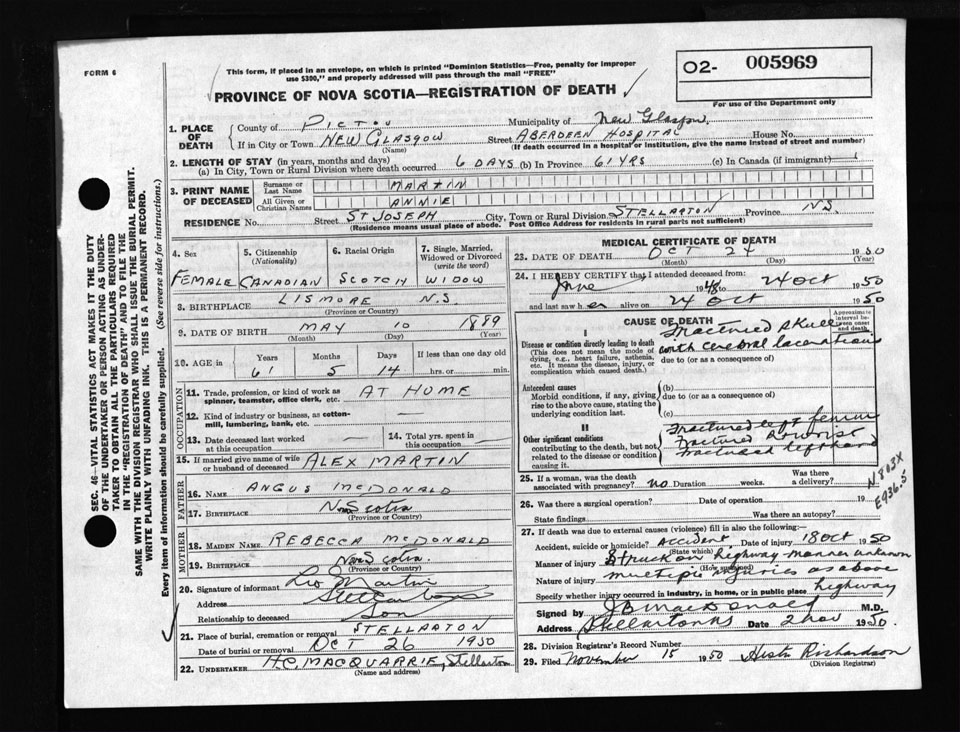 FORM 6
This form, if placed in an envelope, on which is printed "Dominion Statistics—Free, penalty for improper
use $300," and properly addressed will pass through the mail "FREE"
PROVINCE OF NOVA SCOTIA—REGISTRATION OF DEATH
02- 005969
For use of the Department only
1. PLACE OF DEATH { County of PICTOU Municipality of New Glasgow.
If in City or Town NEW GLASGOW Street ABERDEEN HOSPITAL House No.
(Name) (If death occurred in a hospital or institution, give the name instead of street and number)
2. LENGTH OF STAY (in years, months and days)
(a) In City, Town or Rural Division where death occurred 6 DAYS (b) In Province 61 YRS (c) In Canada (if immigrant)
3. PRINT NAME OF DECEASED
Surname or Last Name MARTIN
All Given or Christian Names ANNIE
RESIDENCE No. Street ST JOSEPH City, Town or Rural Division STELLARTON Province N.S.
(Residence means usual place of abode. Post Office Address for residents in rural parts not sufficient)
SEC. 46—VITAL STATISTICS ACT MAKES IT THE DUTY
OF THE UNDERTAKER OR PERSON ACTING AS UNDER-
TAKER TO OBTAIN ALL THE PARTICULARS REQUIRED
IN THE "REGISTRATION OF DEATH" AND TO FILE THE
SAME WITH THE DIVISION REGISTRAR WHO SHALL ISSUE THE BURIAL PERMIT.
WRITE PLAINLY WITH UNFADING INK. THIS IS A PERMANENT RECORD.
Every item of information should be carefully supplied. (See reverse side for instructions.)
4. Sex 5. Citizenship (Nationality) 6. Racial Origin 7. Single, Married, Widowed or Divorced (write the word)
FEMALE CANADIAN SCOTCH WIDOW
8. BIRTHPLACE LISMORE N.S.
(Province or Country)
9. DATE OF BIRTH MAY 10 1889
(Month) (Day) (Year)
10. AGE in Years Months Days If less than one day old
61 5 14 hrs. or min.
OCCUPATION
11. Trade, profession, or kind of work as spinner, teamster, office clerk, etc. AT HOME
12. Kind of industry or business, as cotton-mill, lumbering, bank, etc. —
13. Date deceased last worked at this occupation — 14. Total yrs. spent in this occupation —
15. If married give name of wife or husband of deceased ALEX MARTIN
FATHER
16. NAME ANGUS McDONALD
17. BIRTHPLACE Nova Scotia
(Province or Country)
MOTHER
18. MAIDEN NAME REBECCA McDONALD
19. BIRTHPLACE Nova Scotia.
(Province or Country)
20. Signature of informant Leo Martin
Address Stellarton
Relationship to deceased Son
21. Place of burial, cremation or removal STELLARTON
Date of burial or removal OCT 26 1950
22. UNDERTAKER H.C. MACQUARRIE, Stellarton
(Name and address)
MEDICAL CERTIFICATE OF DEATH
23. DATE OF DEATH OCT 24 1950
(Month) (Day)
24. I HEREBY CERTIFY that I attended deceased from:
June 1948 to 24 Oct 1950
and last saw her alive on 24 Oct 1950
CAUSE OF DEATH
Approximate interval between onset and death
I
Disease or condition directly leading to death
(This does not mean the mode of dying, e.g., heart failure, asthenia, etc. It means the disease, injury, or complication which caused death.)
Fractured Skull
with cerebral lacerations
due to (or as a consequence of)
Antecedent causes
Morbid conditions, if any, giving rise to the above cause, stating the underlying condition last.
(b)
due to (or as a consequence of)
(c)
II
Other significant conditions
contributing to the death, but not related to the disease or condition causing it.
Fractured left femur
Fractured R wrist
Fractured left hand
N 803X
E936.5
25. If a woman, was the death associated with pregnancy? no Duration weeks. Was there a delivery?
26. Was there a surgical operation? Date of operation 19
State findings Was there an autopsy?
27. If death was due to external causes (violence) fill in also the following:—
Accident, suicide or homicide? Accident. Date of injury 18 Oct 1950
(State which)
Manner of injury Struck on highway manner unknown
(How sustained)
Nature of injury multiple injuries as above
Specify whether injury occurred in industry, in home, or in public place highway
Signed by J B MacDonald M.D.
Address Stellarton NS Date 2 Nov 1950.
28. Division Registrar's Record Number
29. Filed November 15 1950 Richardson
(Division Registrar)